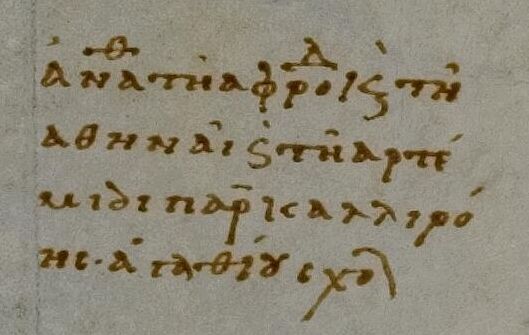 ἀναθ τῆ ἀφροδι ϛ τῆ
ἀθηνᾶι ϛ τῆ ἀρτέ
μιδι παρ καλλιρό
ης· ἀγαθίου σχο